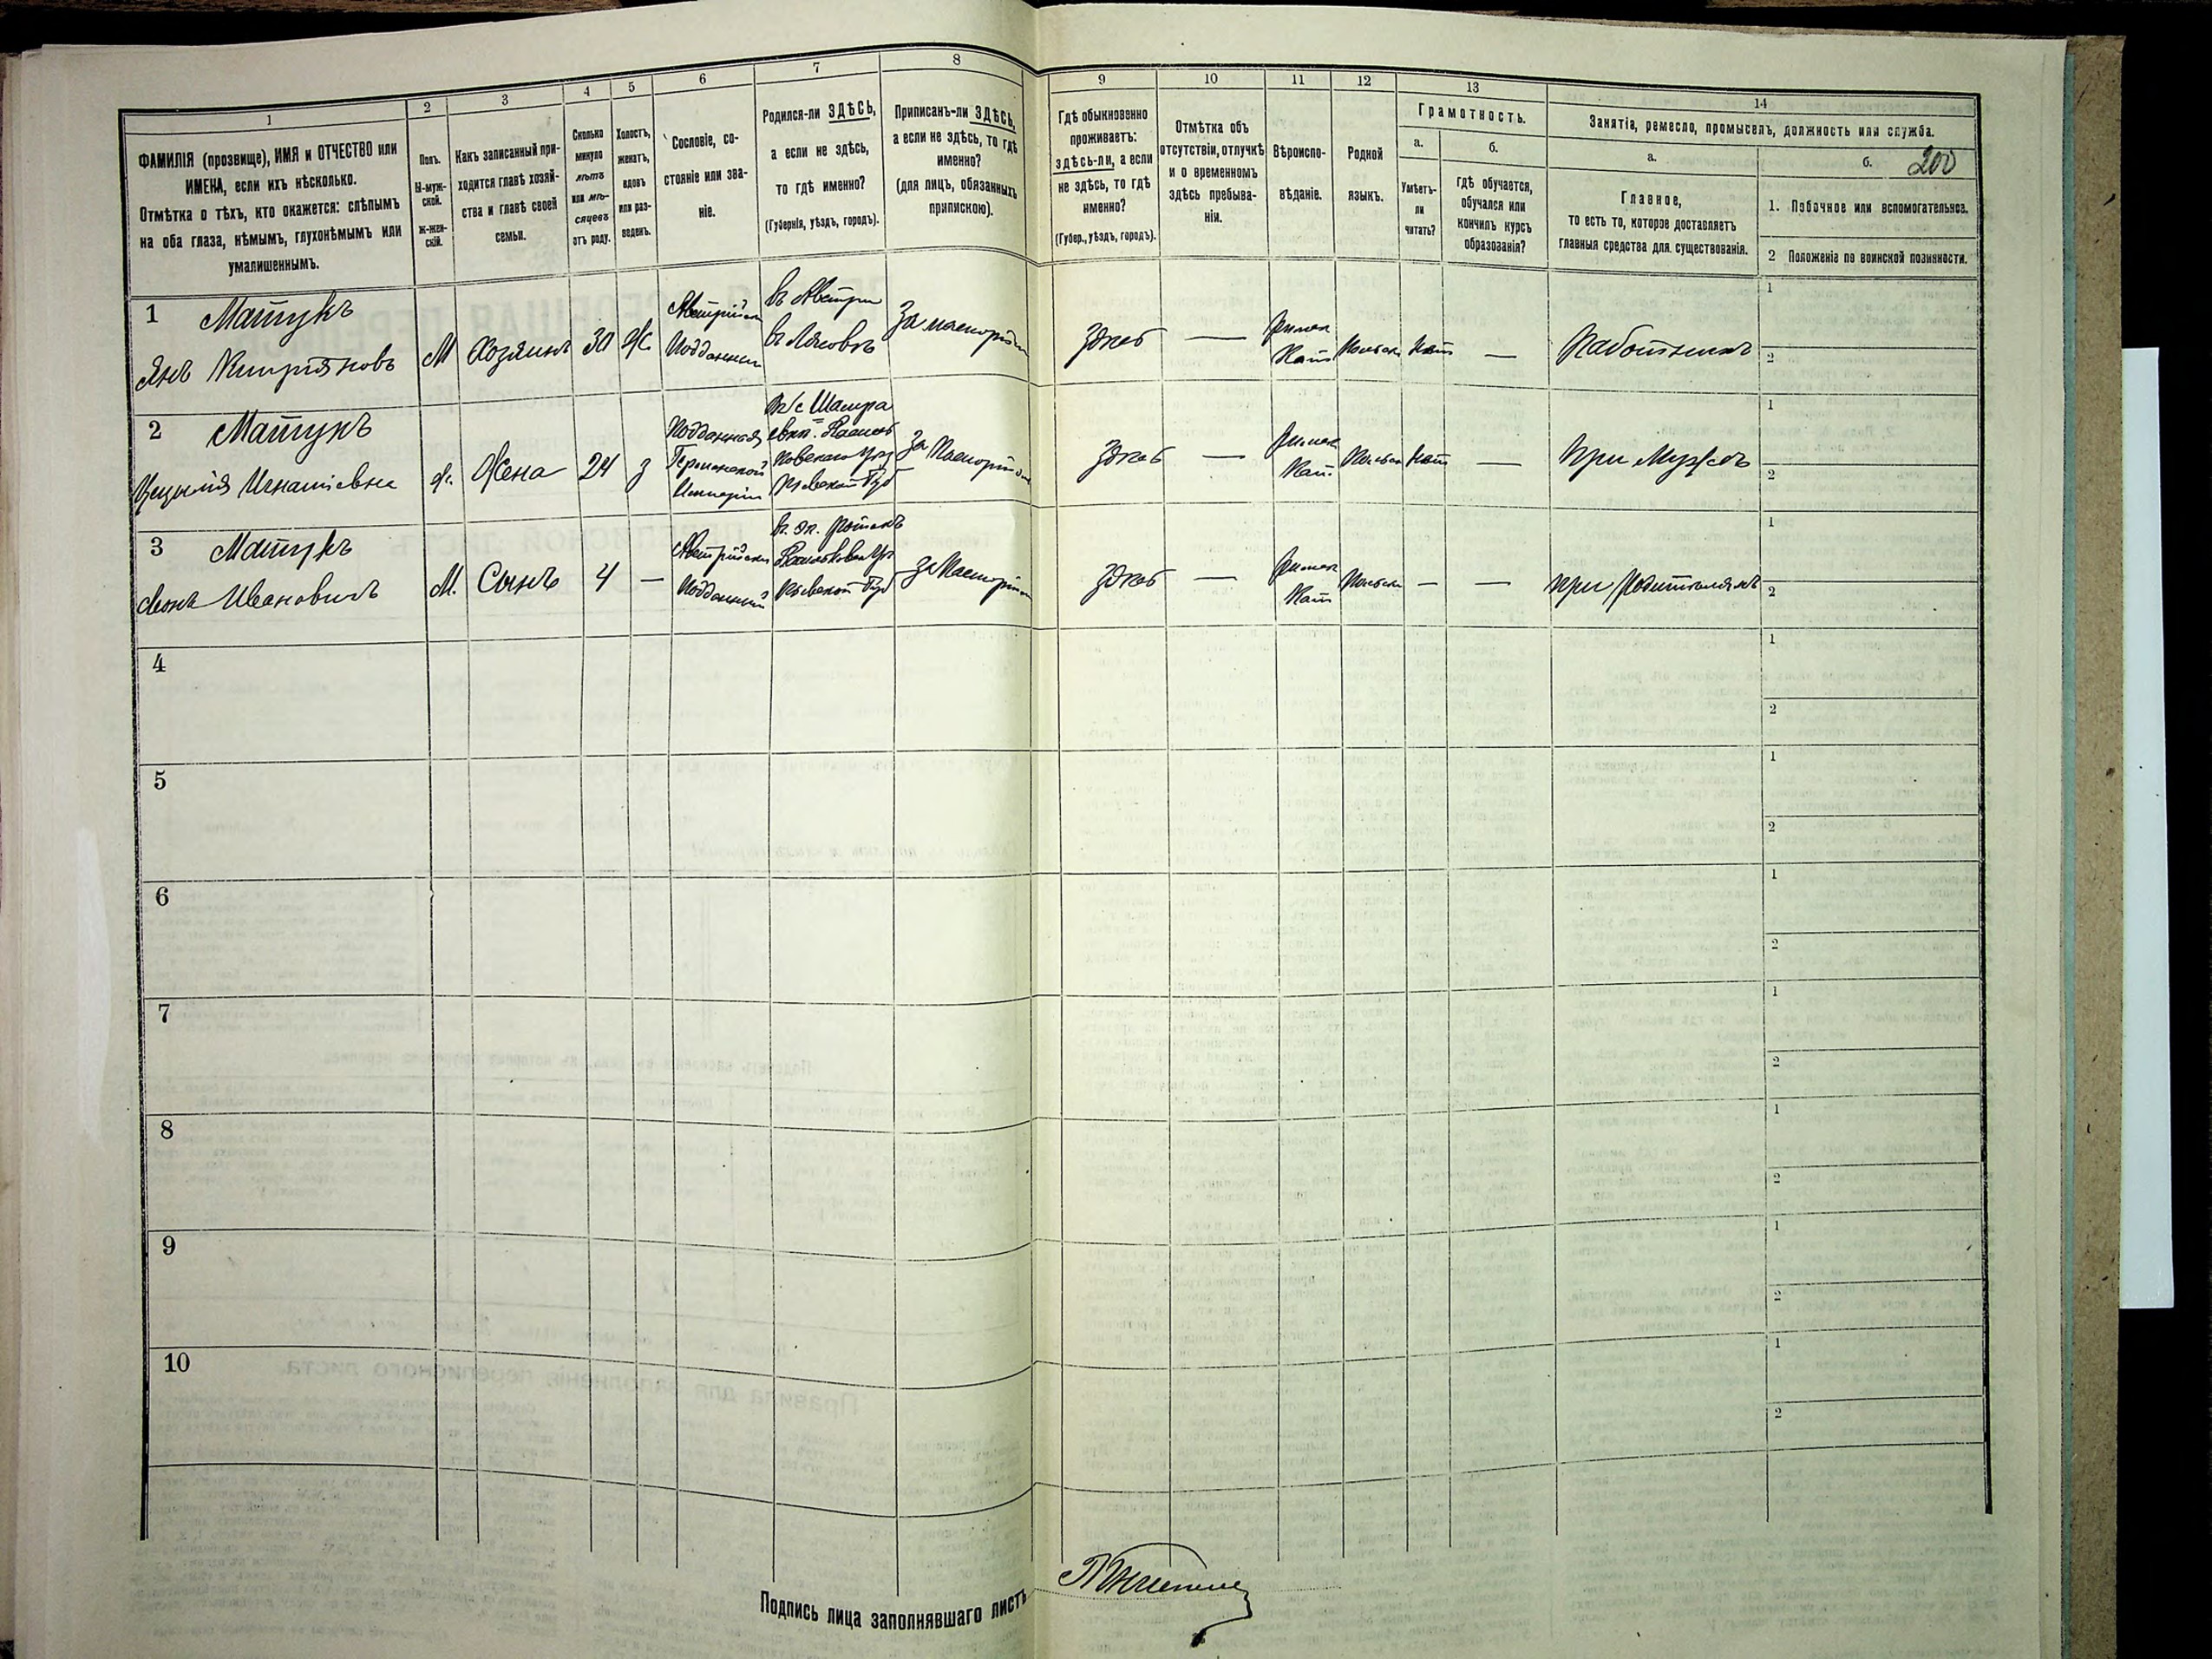 1
2
3
4
5
6
7
8
9
10
11
12
13
14
ФАМИЛІЯ (прозвище), ИМЯ и ОТЧЕСТВО или
ИМЕНА, если ихъ нѣсколько.
Отмѣтка о тѣхъ, кто окажется: слѣпымъ
на оба глаза, нѣмымъ, глухонѣмымъ или
умалишеннымъ.
Полъ.
М-муж-
ской.
ж-жен-
скій.
Какъ записанный при-
ходится главѣ хозяй-
ства и главѣ своей
семьи.
Сколько
минуло
лѣтъ
или мѣ-
сяцевъ
отъ роду.
Холостъ,
женатъ,
вдовъ
или раз-
веденъ.
Сословіе, со-
стояніе или зва-
ніе.
Родился-ли ЗДѢСЬ,
а если не здѣсь,
то гдѣ именно?
(Губернія, уѣздъ, городъ).
Приписанъ-ли ЗДѢСЬ,
а если не здѣсь, то гдѣ
именно?
(для лицъ, обязанныхъ
припискою).
Гдѣ обыкновенно
проживаетъ:
здѣсь-ли, а если
не здѣсь, то гдѣ
именно?
(Губер., уѣздъ, городъ).
Отмѣтка объ
отсутствіи, отлучкѣ
и о временномъ
здѣсь пребыва-
ніи.
Вѣроиспо-
вѣданіе.
Родной
языкъ.
Грамотность.
а.
Умѣетъ-
ли
читать?
б.
гдѣ обучается,
обучался или
кончилъ курсъ
образованія?
Занятія, ремесло, промыселъ, должность или служба.
а.
Главное,
то есть то, которое доставляетъ
главныя средства для существованія.
б.
200
1. Побочное или вспомогательное.
2 Положеніе по воинской повинности.
1
Матукъ
Янъ
М
Хозяинъ
30
Ж.
Подданный
въ Австріи
здѣсь
—
Римск
Кат
Польск
нѣт
—
Работникъ
1
2
2
Матукъ
Цецилія Игнатіевна
ж.
Жена
24
з
Подданная
Германской
Имперіи
Кіевской Губ
За Паспортом
здѣсь
—
Римск
Кат.
Польск
нѣт
—
При Мужѣ
1
2
3
Матукъ
Леонъ Ивановичъ
М.
Сынъ
4
—
Австрійскій
Подданный
Кіевской Губ
За Паспортом
здѣсь
—
Римск
Кат
Польск
—
—
при Родителяхъ
1
2
4
1
2
5
1
2
6
1
2
7
1
2
8
1
2
9
1
2
10
1
2
Подпись лица заполнявшаго листъ